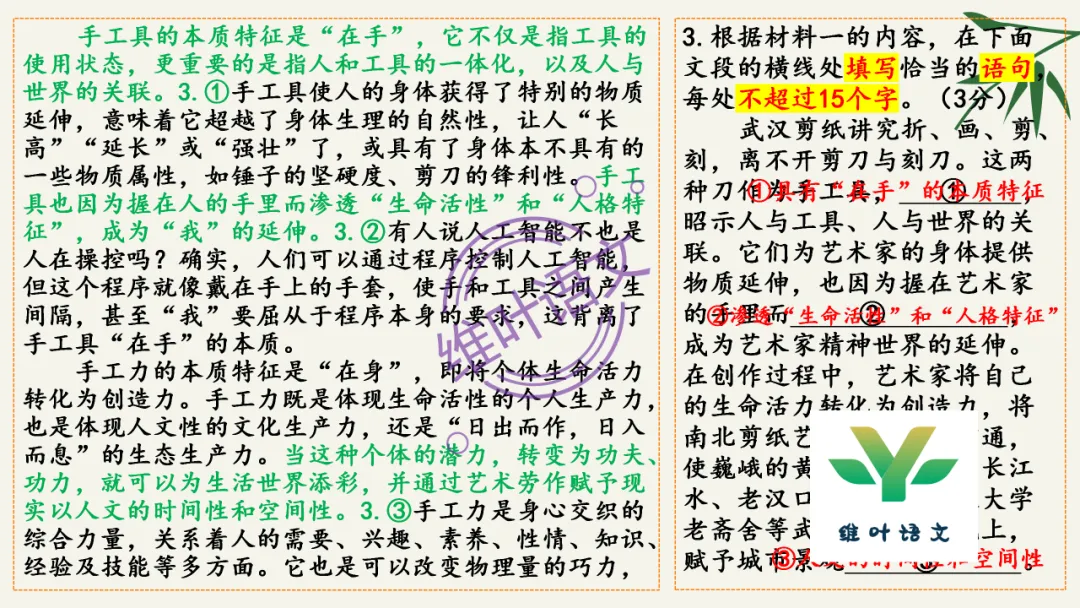 手工具的本质特征是“在手”，它不仅是指工具的
使用状态，更重要的是指人和工具的一体化，以及人与
世界的关联。3.①手工具使人的身体获得了特别的物质
延伸，意味着它超越了身体生理的自然性，让人“长
高”“延长”或“强壮”了，或具有了身体本不具有的
一些物质属性，如锤子的坚硬度、剪刀的锋利性。手工
具也因为握在人的手里而渗透“生命活性”和“人格特
征”，成为“我”的延伸。3.②有人说人工智能不也是
人在操控吗？确实，人们可以通过程序控制人工智能，
但这个程序就像戴在手上的手套，使手和工具之间产生
间隔，甚至“我”要屈从于程序本身的要求，这背离了
手工具“在手”的本质。
手工力的本质特征是“在身”，即将个体生命活力
转化为创造力。手工力既是体现生命活性的个人生产力，
也是体现人文性的文化生产力，还是“日出而作，日入
而息”的生态生产力。当这种个体的潜力，转变为功夫、
功力，就可以为生活世界添彩，并通过艺术劳作赋予现
实以人文的时间性和空间性。3.③手工力是身心交织的
综合力量，关系着人的需要、兴趣、素养、性情、知识、
经验及技能等多方面。它也是可以改变物理量的巧力，
维叶语文
3.根据材料一的内容，在下面
文段的横线处填写恰当的语句，
每处不超过15个字。（3分）
武汉剪纸讲究折、画、剪、
刻，离不开剪刀与刻刀。这两
种刀作为手工具，①，
①具有“在手”的本质特征
昭示人与工具、人与世界的关
联。它们为艺术家的身体提供
物质延伸，也因为握在艺术家
的手里而②，
②渗透“生命活性”和“人格特征”
成为艺术家精神世界的延伸。
在创作过程中，艺术家将自己
的生命活力转化为创造力，将
南北剪纸艺 通，
使巍峨的黄 长江
水、老汉口 大学
老斋舍等武 上，
赋予城市景观③。
③ 的时间性和空间性
维叶语文